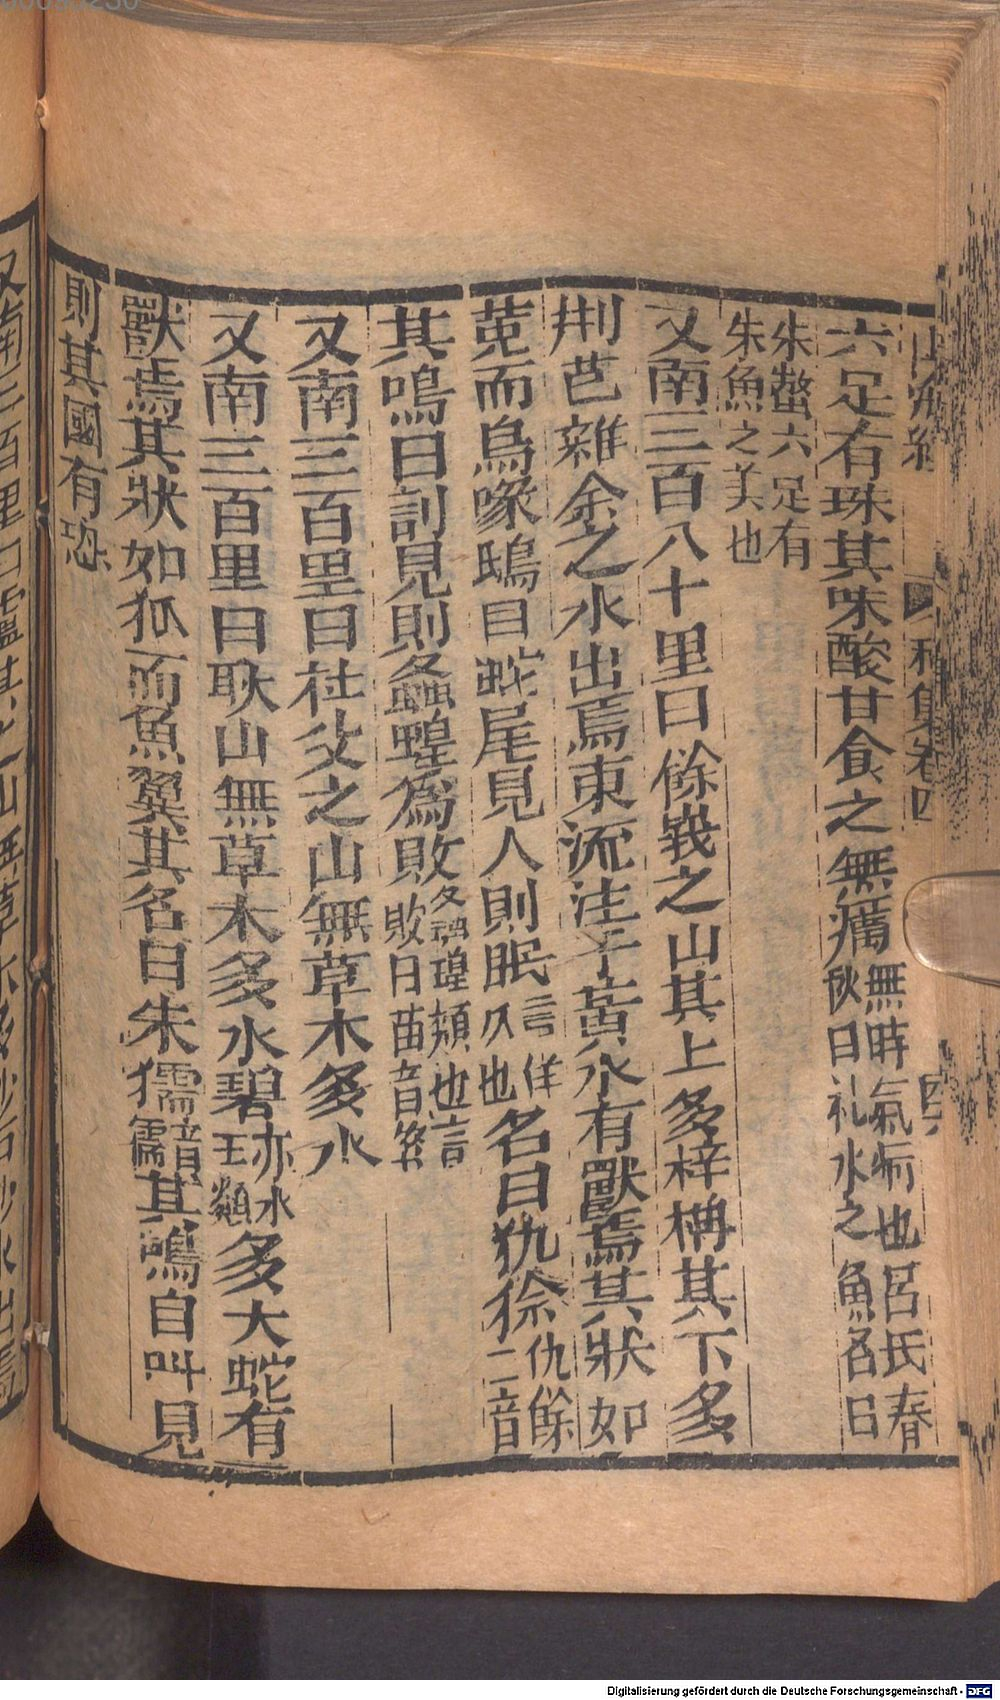 山海經 利集卷四 四六
六足有珠其味酸甘食之無癘無時氣病也呂氏春秋曰礼水之魚名曰
朱螯六足有朱魚之美也
又南三百八十里曰餘峩之山其上多梓枏其下多
荆芑雜余之水出焉東流注于黃水有獸焉其狀如
菟而鳥喙鴟目蛇尾見人則眠言佯仆也名曰犰狳仇餘二音
其鳴曰訆見則螽蝗爲敗螽蝗類也言敗曰苗音終
又南三百里曰杜父之山無草木多水
又南三百里曰耿山無草木多水碧亦水玉類多大蛇有
獸焉其狀如狐而魚翼其名曰朱獳音儒其鳴自叫見
則其國有恐
Digitalisierung gefördert durch die Deutsche Forschungsgemeinschaft - DFG